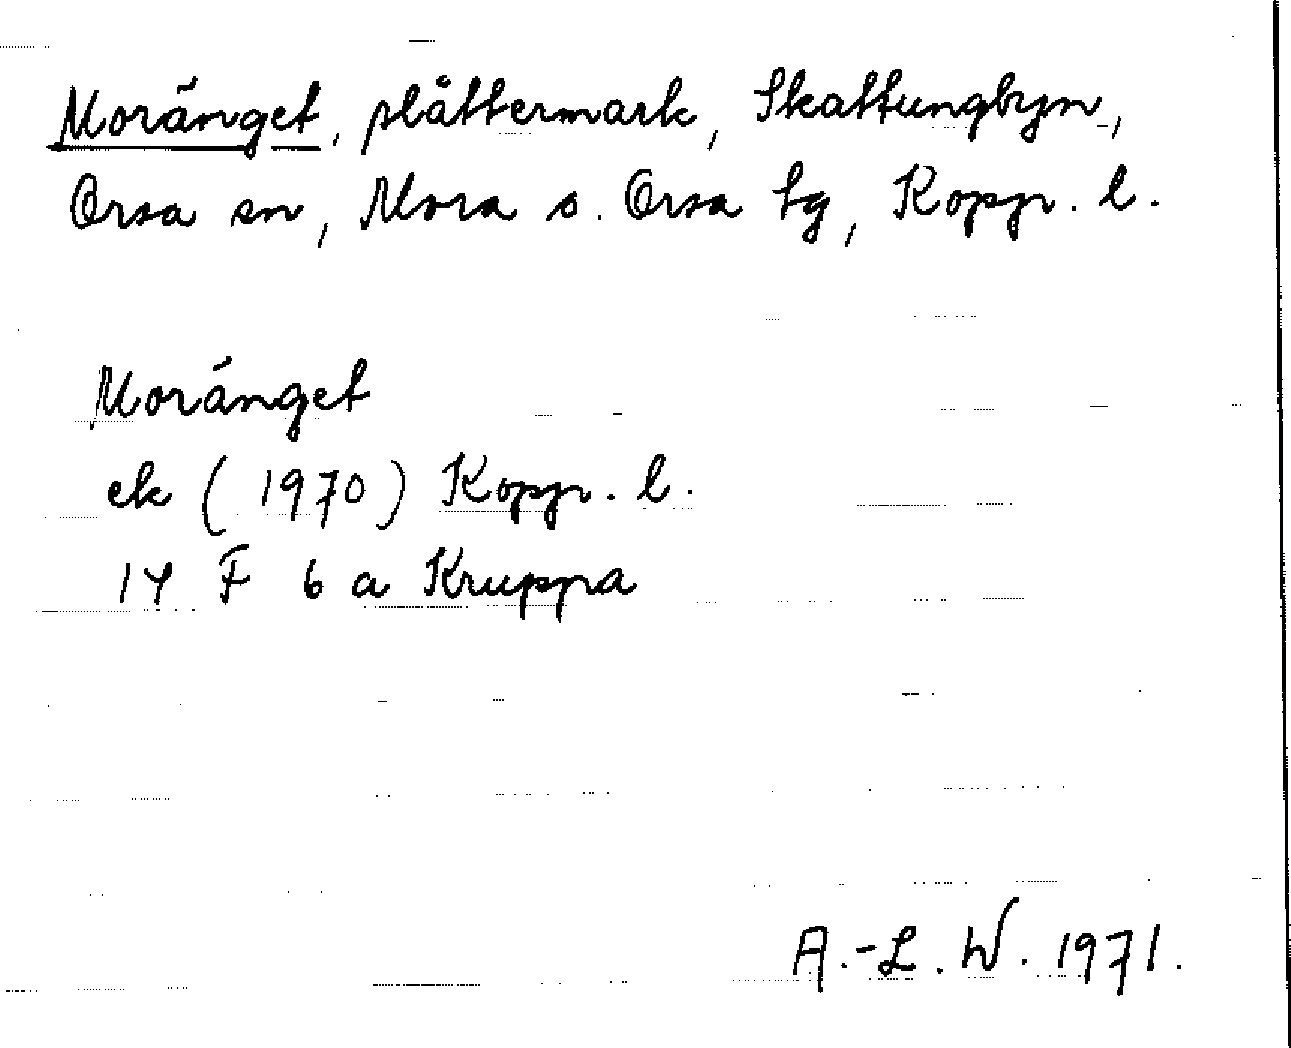 Moränget, plåttermark, Skattungbyn,
Orsa sn, Mora o. Orsa tg, Kopp. l.
Moränget
ek (1970) Kopp. l.
14 F 6 a Kruppa
A.-L. W. 1971.